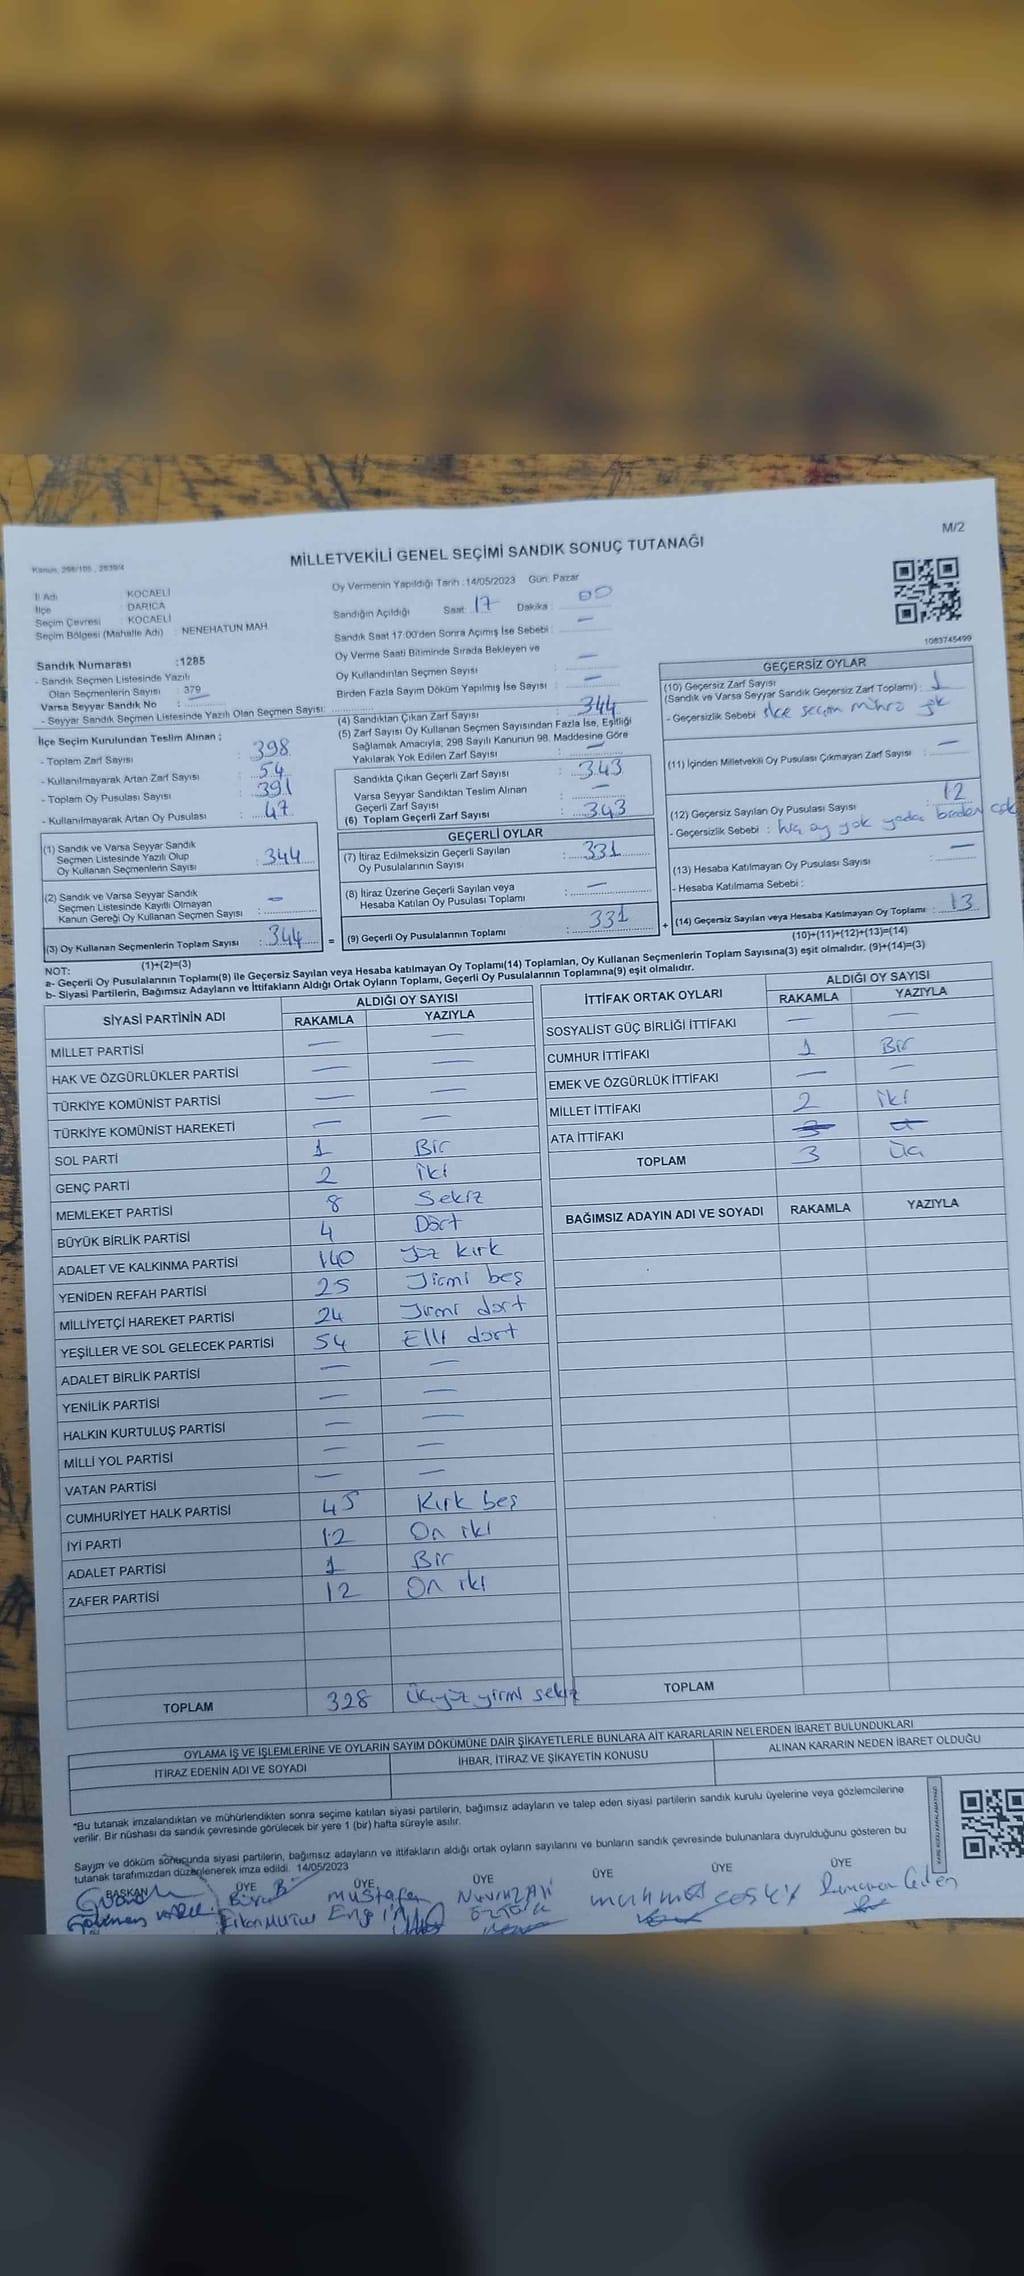 M/2
MİLLETVEKİLİ GENEL SEÇİMİ SANDIK SONUÇ TUTANAĞI
İl Adı KOCAELİ
İlçe DARICA
Seçim Çevresi KOCAELİ
Seçim Bölgesi (Mahalle Adı) : NENEHATUN MAH.
Oy Vermenin Yapıldığı Tarih :14/05/2023 Gün: Pazar
Sandığın Açıldığı Saat: 17 Dakika : 00
Sandık Saat 17:00'den Sonra Açımış İse Sebebi : —
Oy Verme Saati Bitiminde Sırada Bekleyen ve
Oy Kullandırılan Seçmen Sayısı : —
Birden Fazla Sayım Döküm Yapılmış İse Sayısı : —
1083745499
Sandık Numarası :1285
- Sandık Seçmen Listesinde Yazılı
Olan Seçmenlerin Sayısı : 379
Varsa Seyyar Sandık No : —
- Seyyar Sandık Seçmen Listesinde Yazılı Olan Seçmen Sayısı:
İlçe Seçim Kurulundan Teslim Alınan ;
- Toplam Zarf Sayısı : 398
- Kullanılmayarak Artan Zarf Sayısı : 54
- Toplam Oy Pusulası Sayısı : 391
- Kullanılmayarak Artan Oy Pusulası : 47
(1) Sandık ve Varsa Seyyar Sandık
Seçmen Listesinde Yazılı Olup
Oy Kullanan Seçmenlerin Sayısı : 344
(2) Sandık ve Varsa Seyyar Sandık
Seçmen Listesinde Kayıtlı Olmayan
Kanun Gereği Oy Kullanan Seçmen Sayısı : —
(3) Oy Kullanan Seçmenlerin Toplam Sayısı : 344 =
(1)+(2)=(3)
(4) Sandıktan Çıkan Zarf Sayısı : 344
(5) Zarf Sayısı Oy Kullanan Seçmen Sayısından Fazla İse, Eşitliği
Sağlamak Amacıyla; 298 Sayılı Kanunun 98. Maddesine Göre
Yakılarak Yok Edilen Zarf Sayısı : —
Sandıkta Çıkan Geçerli Zarf Sayısı : 343
Varsa Seyyar Sandıktan Teslim Alınan
Geçerli Zarf Sayısı : —
(6) Toplam Geçerli Zarf Sayısı : 343
GEÇERLİ OYLAR
(7) İtiraz Edilmeksizin Geçerli Sayılan
Oy Pusulalarının Sayısı : 331
(8) İtiraz Üzerine Geçerli Sayılan veya
Hesaba Katılan Oy Pusulası Toplamı : —
(9) Geçerli Oy Pusulalarının Toplamı : 331 +
GEÇERSİZ OYLAR
(10) Geçersiz Zarf Sayısı
(Sandık ve Varsa Seyyar Sandık Geçersiz Zarf Toplamı) : 1
- Geçersizlik Sebebi : ilçe seçim mührü yok
(11) İçinden Milletvekili Oy Pusulası Çıkmayan Zarf Sayısı : —
(12) Geçersiz Sayılan Oy Pusulası Sayısı : 12
- Geçersizlik Sebebi : hiç oy yok yada birden çok
(13) Hesaba Katılmayan Oy Pusulası Sayısı : —
- Hesaba Katılmama Sebebi :
(14) Geçersiz Sayılan veya Hesaba Katılmayan Oy Toplamı : 13
(10)+(11)+(12)+(13)=(14)
NOT:
a- Geçerli Oy Pusulalarının Toplamı(9) ile Geçersiz Sayılan veya Hesaba katılmayan Oy Toplamı(14) Toplamları, Oy Kullanan Seçmenlerin Toplam Sayısına(3) eşit olmalıdır. (9)+(14)=(3)
b- Siyasi Partilerin, Bağımsız Adayların ve İttifakların Aldığı Ortak Oyların Toplamı, Geçerli Oy Pusulalarının Toplamına(9) eşit olmalıdır.
SİYASİ PARTİNİN ADI ALDIĞI OY SAYISI
RAKAMLA YAZIYLA
MİLLET PARTİSİ — —
HAK VE ÖZGÜRLÜKLER PARTİSİ — —
TÜRKİYE KOMÜNİST PARTİSİ — —
TÜRKİYE KOMÜNİST HAREKETİ — —
SOL PARTİ 1 Bir
GENÇ PARTİ 2 iki
MEMLEKET PARTİSİ 8 Sekiz
BÜYÜK BİRLİK PARTİSİ 4 Dört
ADALET VE KALKINMA PARTİSİ 140 Yüz kırk
YENİDEN REFAH PARTİSİ 25 Yirmi beş
MİLLİYETÇİ HAREKET PARTİSİ 24 Yirmi dört
YEŞİLLER VE SOL GELECEK PARTİSİ 54 Elli dört
ADALET BİRLİK PARTİSİ — —
YENİLİK PARTİSİ — —
HALKIN KURTULUŞ PARTİSİ — —
MİLLİ YOL PARTİSİ — —
VATAN PARTİSİ — —
CUMHURİYET HALK PARTİSİ 45 Kırk beş
İYİ PARTİ 12 On iki
ADALET PARTİSİ 1 Bir
ZAFER PARTİSİ 12 On iki
TOPLAM 328 Üçyüz yirmi sekiz
İTTİFAK ORTAK OYLARI ALDIĞI OY SAYISI
RAKAMLA YAZIYLA
SOSYALİST GÜÇ BİRLİĞİ İTTİFAKI — —
CUMHUR İTTİFAKI 1 Bir
EMEK VE ÖZGÜRLÜK İTTİFAKI — —
MİLLET İTTİFAKI 2 iki
ATA İTTİFAKI
TOPLAM 3 Üç
BAĞIMSIZ ADAYIN ADI VE SOYADI RAKAMLA YAZIYLA
TOPLAM
OYLAMA İŞ VE İŞLEMLERİNE VE OYLARIN SAYIM DÖKÜMÜNE DAİR ŞİKAYETLERLE BUNLARA AİT KARARLARIN NELERDEN İBARET BULUNDUKLARI
İTİRAZ EDENİN ADI VE SOYADI İHBAR, İTİRAZ VE ŞİKAYETİN KONUSU ALINAN KARARIN NEDEN İBARET OLDUĞU
*Bu tutanak imzalandıktan ve mühürlendikten sonra seçime katılan siyasi partilerin, bağımsız adayların ve talep eden siyasi partilerin sandık kurulu üyelerine veya gözlemcilerine
verilir. Bir nüshası da sandık çevresinde görülecek bir yere 1 (bir) hafta süreyle asılır.
Sayım ve döküm sonucunda siyasi partilerin, bağımsız adayların ve ittifakların aldığı ortak oyların sayılarını ve bunların sandık çevresinde bulunanlara duyrulduğunu gösteren bu
tutanak tarafımızdan düzenlenerek imza edildi. 14/05/2023
BAŞKAN ÜYE ÜYE ÜYE ÜYE ÜYE ÜYE
Mustafa
Engin